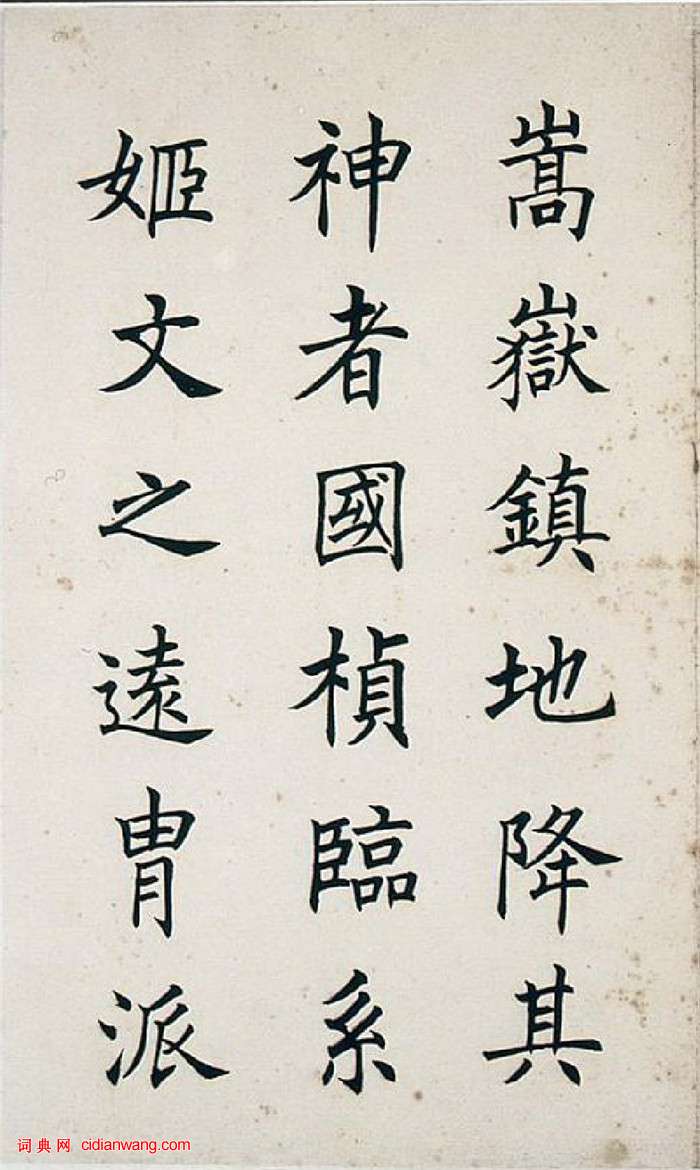 嵩嶽鎮地降其
神者國楨臨系
姬文之遠胄派
词典网 cidianwang.com